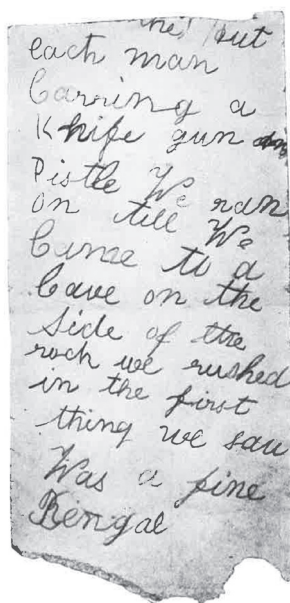 but
each man
Carring a
Knife gun
Pistle We ran
on till We
Came to a
Cave on the
Side of the
roch we rushed
in the first
thing we saw
Was a fine
Bengal